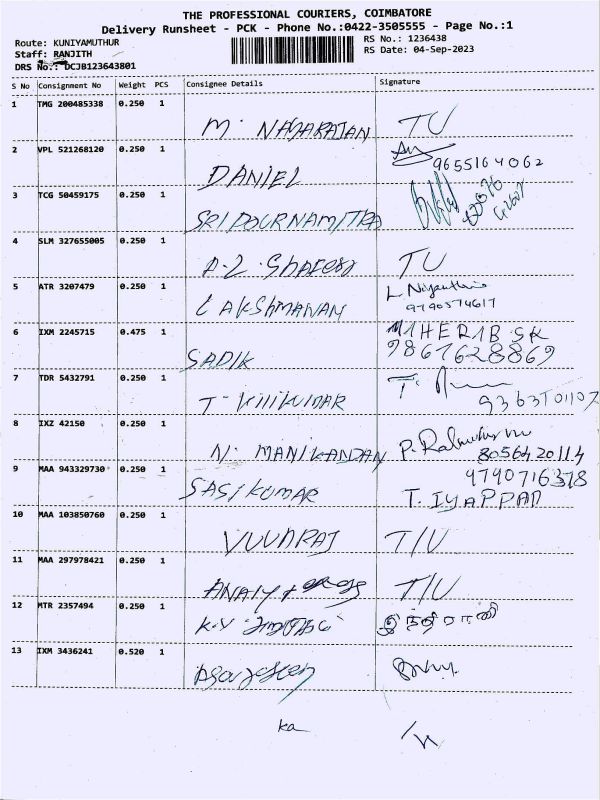 THE PROFESSIONAL COURIERS, COIMBATORE
Delivery Runsheet - PCK - Phone No.:0422-3505555 - Page No.:1
Route: KUNIYAMUTHUR
RS No.: 1236438
Staff: RANJITH
RS Date: 04-Sep-2023
DRS No.: DCJB123643801
S No Consignment No Weight PCS Consignee Details Signature
1 TMG 200485338 0.250 1 M. NAGARAJAN TU
2 VPL 521268120 0.250 1 DANIEL 9655164062
3 TCG 50459175 0.250 1 SRI POURNAMITRA
4 SLM 327655005 0.250 1 TU
5 ATR 3207479 0.250 1 LAKSHMANAN L
9790574617
6 IXM 2245715 0.475 1 SADIK MAHERAB SK
9867628869
7 TDR 5432791 0.250 1 T.
8 IXZ 42150 0.250 1 N. MANIKANDAN P.
8056420114
9 MAA 943329730 0.250 1 SASIKUMAR 9790716378
T. IYAPPAN
10 MAA 103850760 0.250 1 YUVARAJ T/U
11 MAA 297978421 0.250 1 T/U
12 MTR 2357494 0.250 1 K.V இந்திராணி
13 IXM 3436241 0.520 1
ka